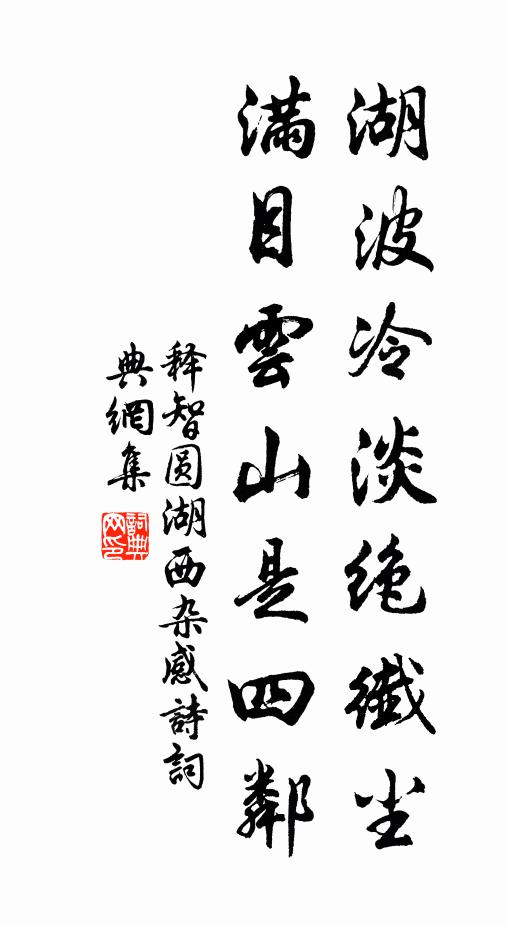 湖波冷淡绝纖尘
滿目雲山是四鄰
释智圆湖西杂感詩詞
典網集
詞典網印